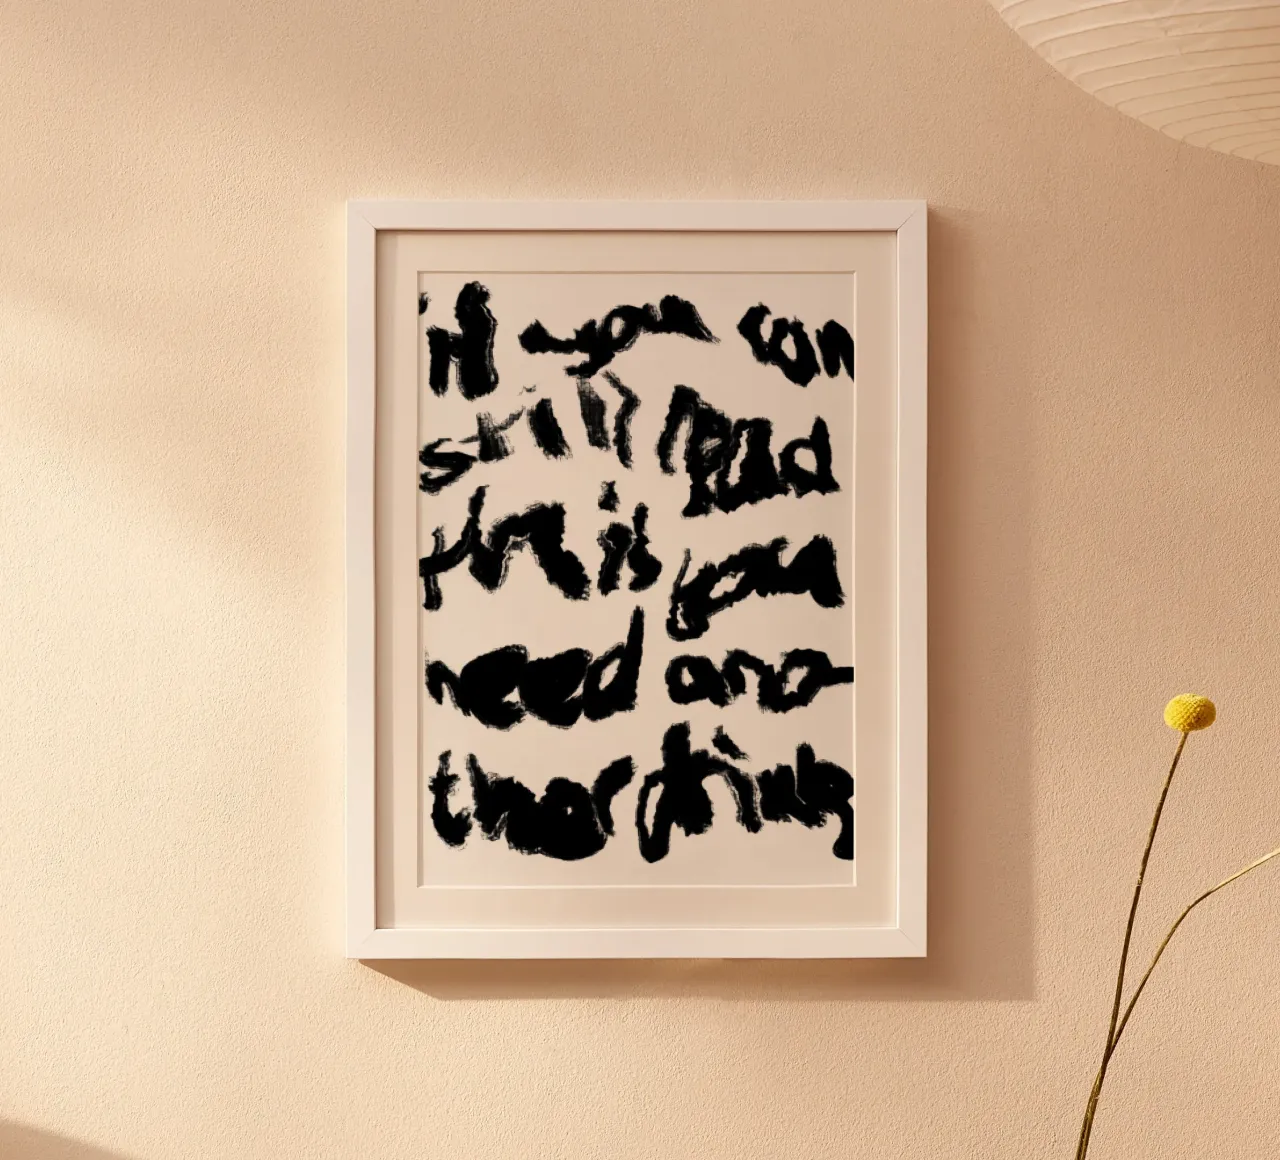 if you can
still read
this you
need ano
ther drink